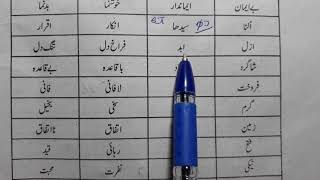 بے ایمان ایماندار خوشنما بدنما
الٹا سیدھا انکار اقرار
ازل ابد فراخ دل تنگ دل
شاگرد باقاعدہ بے قاعدہ
فروخت لافانی فانی
گرم سخی بخیل
زمین اتفاق نا اتفاق
فتح رہائی قید
نیکی نفرت محبت